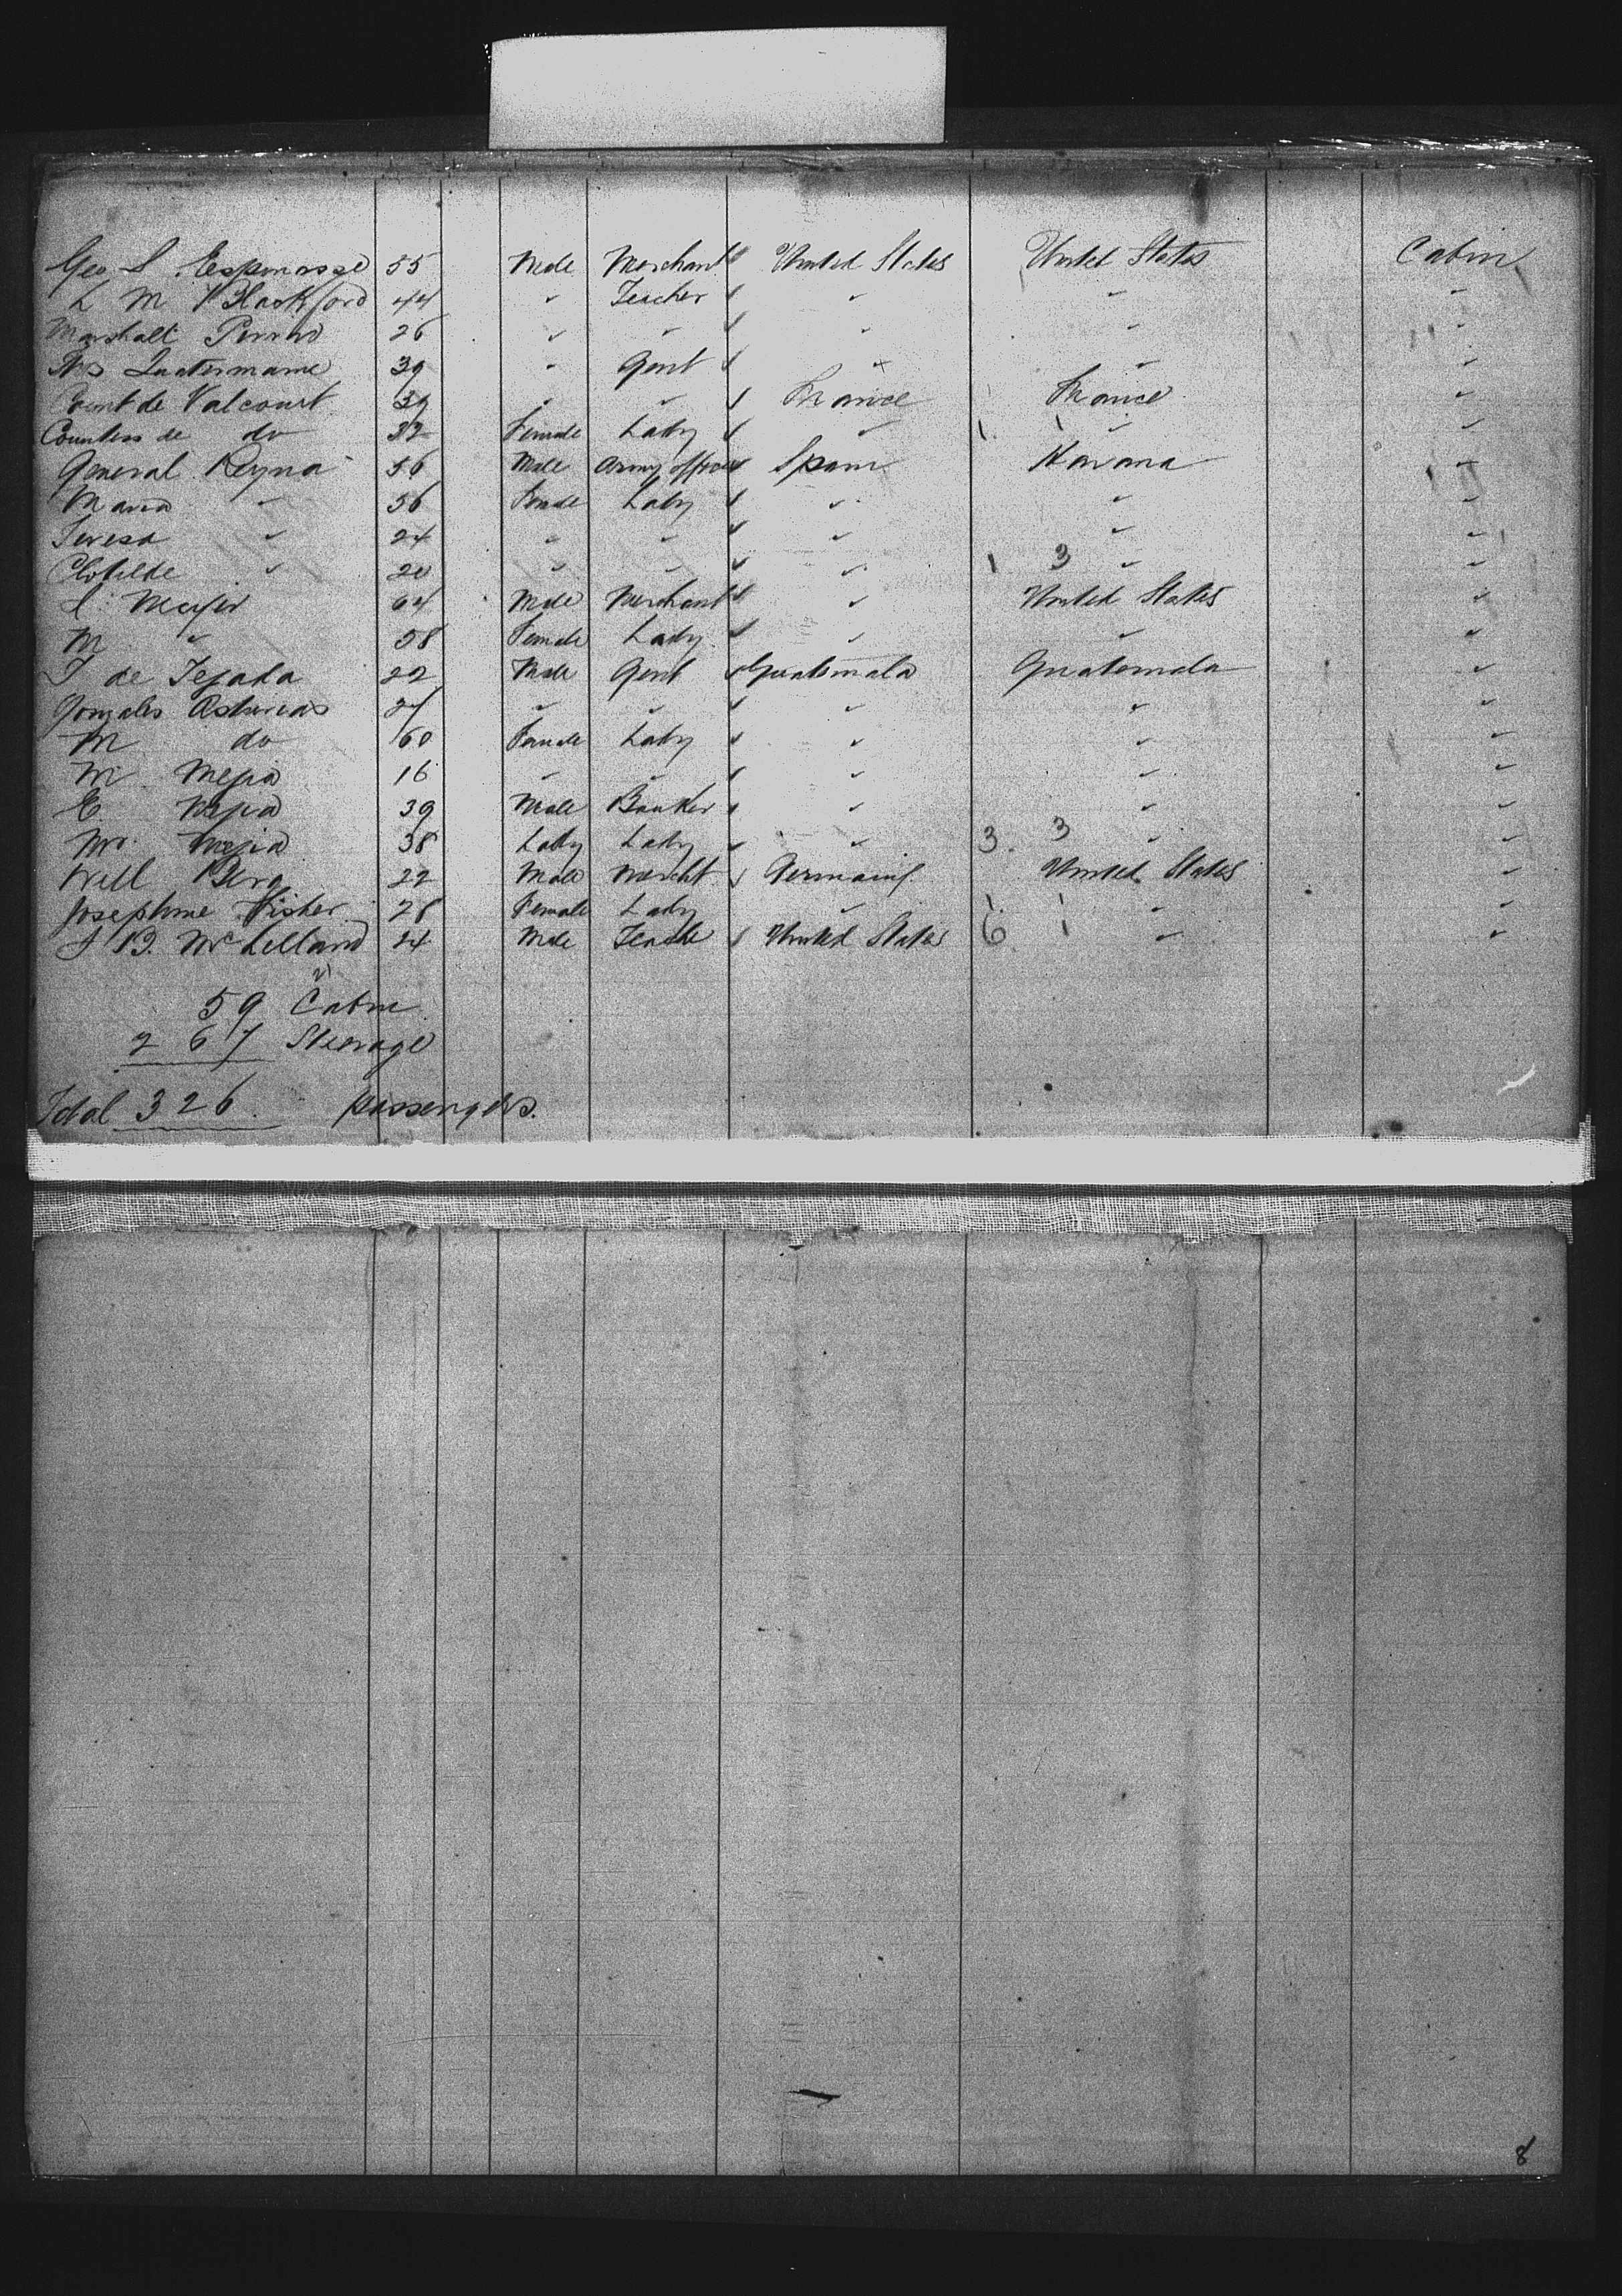 Geo S. Espinasse 55 Male Merchant United States United States Cabin
L M Blackford 44 " Teacher " " "
Marshall 26 " " " " "
39 " Gent " " "
Count de Valcourt 39 " " France France "
Countess de do 32 Female Lady " " "
General Reyna 56 Male Army officer Spain Havana "
Maria " 56 Female Lady " " "
Teresa " 24 " " " " "
Clotilde " 20 " " " 1 3 " "
S. Meyer 64 Male Merchant " United States "
M " 58 Female Lady " " "
J de Tejada 22 Male Gent Guatemala Guatemala "
Gonzales Asturias 27 " " " " "
M do 60 Female Lady " " "
M Mejia 16 " " " " "
E. Mejia 39 Male Banker " " "
Mejia 38 Lady Lady " 3. 3 " "
Will Berg 22 Male Mercht Germany United States "
Josephine Fisher 28 Female Lady " 1. 1 " "
S B. McLelland 24 Male United States 6 1 " "
21
59 Cabin
267 Steerage
Total 326 passengers.
8